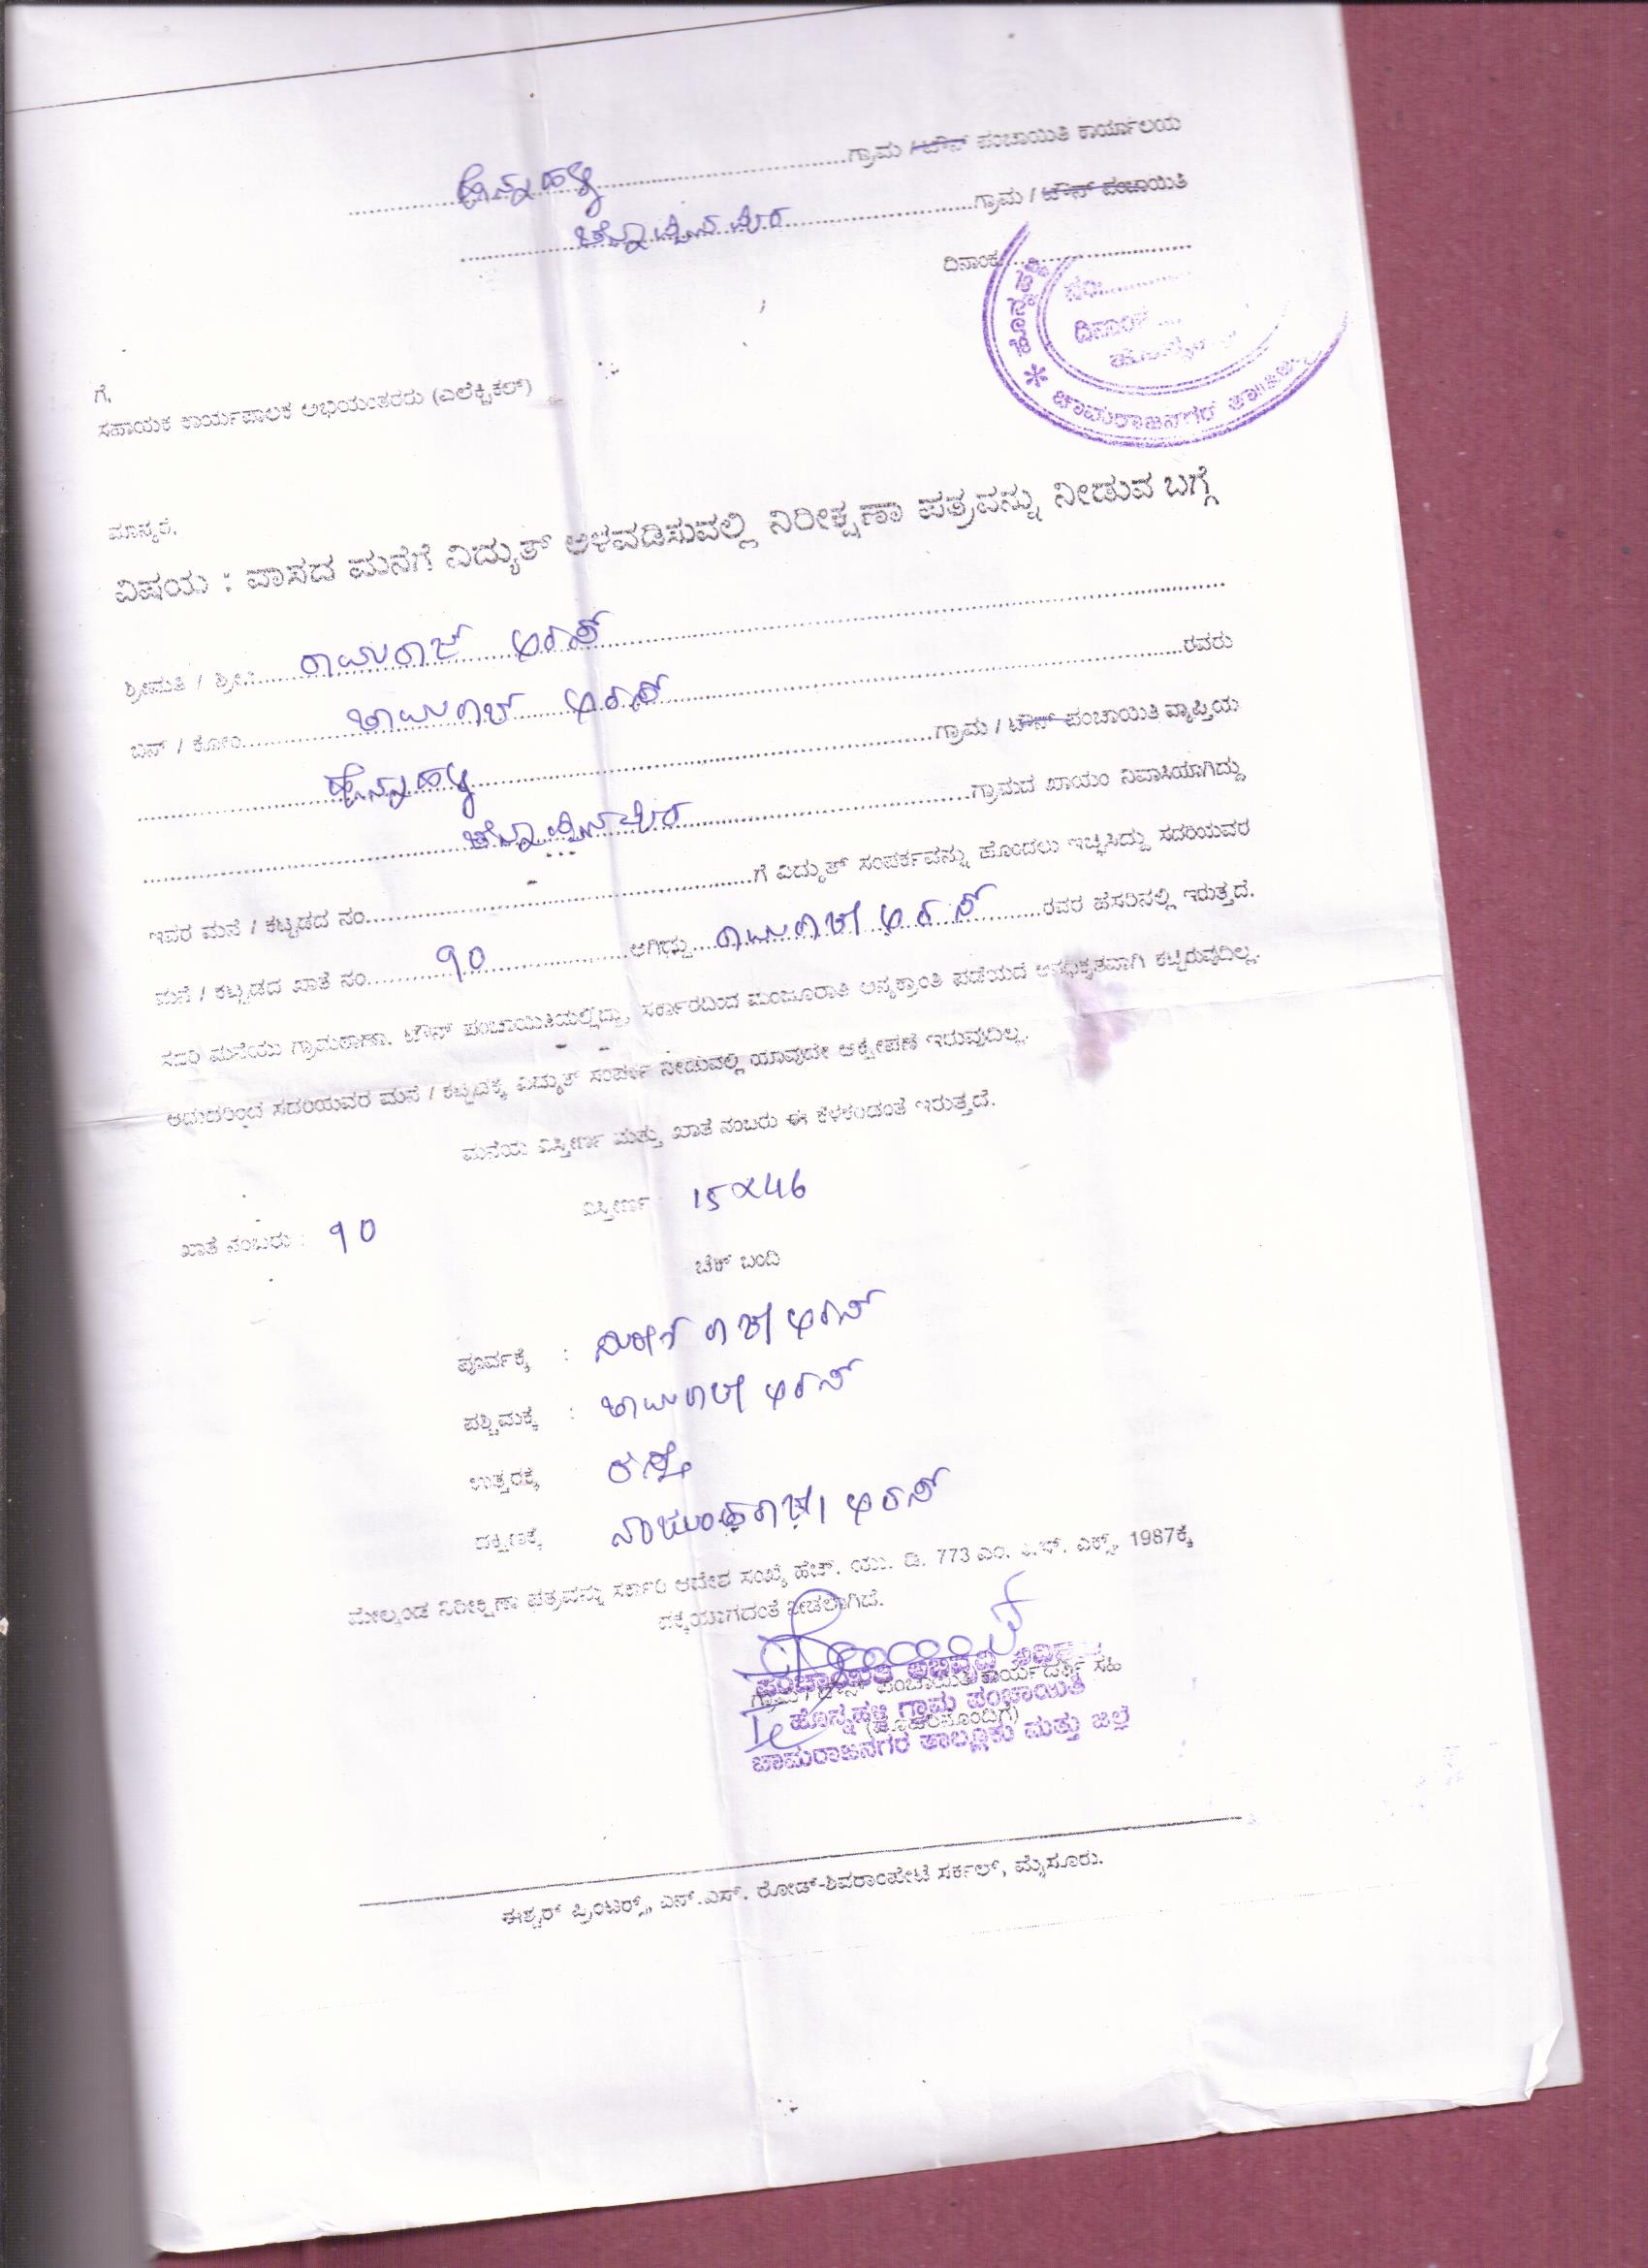 ಹೊನ್ನಹಳ್ಳಿ ಗ್ರಾಮ / ಟೌನ್ ಪಂಚಾಯಿತಿ ಕಾರ್ಯಾಲಯ
ಗ್ರಾಮ / ಟೌನ್ ಪಂಚಾಯಿತಿ
ದಿನಾಂಕ
ನಂ.
ದಿನಾಂಕ
ಚಾಮರಾಜನಗರ ತಾಲ್ಲೂಕು
ಗೆ,
ಸಹಾಯಕ ಕಾರ್ಯಪಾಲಕ ಅಭಿಯಂತರರು (ಎಲೆಕ್ಟ್ರಿಕಲ್)
ಮಾನ್ಯರೆ,
ವಿಷಯ : ವಾಸದ ಮನೆಗೆ ವಿದ್ಯುತ್ ಅಳವಡಿಸುವಲ್ಲಿ ನಿರೀಕ್ಷಣಾ ಪತ್ರವನ್ನು ನೀಡುವ ಬಗ್ಗೆ
ಶ್ರೀಮತಿ / ಶ್ರೀ : ರಾಮರಾಜ್ ಅರಸ್
ಬಿನ್ / ಕೋಂ ಚಾಮರಾಜ್ ಅರಸ್ ರವರು
ಹೊನ್ನಹಳ್ಳಿ ಗ್ರಾಮ / ಟೌನ್ ಪಂಚಾಯಿತಿ ವ್ಯಾಪ್ತಿಯ
ಗ್ರಾಮದ ಖಾಯಂ ನಿವಾಸಿಯಾಗಿದ್ದು
ಇವರ ಮನೆ / ಕಟ್ಟಡದ ನಂ. ಗೆ ವಿದ್ಯುತ್ ಸಂಪರ್ಕವನ್ನು ಹೊಂದಲು ಇಚ್ಛಿಸಿದ್ದು ಸದರಿಯವರ
ಮನೆ / ಕಟ್ಟಡದ ಖಾತೆ ನಂ. 90 ಆಗಿದ್ದು ರಾಮರಾಜೇ ಅರಸ್ ರವರ ಹೆಸರಿನಲ್ಲಿ ಇರುತ್ತದೆ.
ಸದರಿ ಮನೆಯು ಗ್ರಾಮಠಾಣಾ, ಟೌನ್ ಪಂಚಾಯಿತಿಯಲ್ಲಿದ್ದು, ಸರ್ಕಾರದಿಂದ ಮಂಜೂರಾತಿ ಅನ್ಯಕ್ರಾಂತಿ ಪಡೆಯದೆ ಅನಧಿಕೃತವಾಗಿ ಕಟ್ಟಿರುವುದಿಲ್ಲ.
ಆದುದರಿಂದ ಸದರಿಯವರ ಮನೆ / ಕಟ್ಟಡಕ್ಕೆ ವಿದ್ಯುತ್ ಸಂಪರ್ಕ ನೀಡುವಲ್ಲಿ ಯಾವುದೇ ಆಕ್ಷೇಪಣೆ ಇರುವುದಿಲ್ಲ.
ಮನೆಯ ವಿಸ್ತೀರ್ಣ ಮತ್ತು ಖಾತೆ ನಂಬರು ಈ ಕೆಳಕಂಡಂತೆ ಇರುತ್ತದೆ.
ಖಾತೆ ನಂಬರು : 90 ವಿಸ್ತೀರ್ಣ 15x46
ಚೆಕ್ ಬಂದಿ
ಪೂರ್ವಕ್ಕೆ : ಅರಸ್
ಪಶ್ಚಿಮಕ್ಕೆ : ಚಾಮರಾಜೇ ಅರಸ್
ಉತ್ತರಕ್ಕೆ ರಸ್ತೆ
ದಕ್ಷಿಣಕ್ಕೆ ಅರಸ್
ಮೇಲ್ಕಂಡ ನಿರೀಕ್ಷಣಾ ಪತ್ರವನ್ನು ಸರ್ಕಾರಿ ಆದೇಶ ಸಂಖ್ಯೆ ಹೆಚ್. ಯು. ಡಿ. 773 ಎಂ. ಎಕ್ಸ್. 1987ಕ್ಕೆ
ಧಕ್ಕೆಯಾಗದಂತೆ ನೀಡಲಾಗಿದೆ.
ಗ್ರಾಮ / ಟೌನ್ ಪಂಚಾಯಿತಿ ಕಾರ್ಯದರ್ಶಿ ಸಹಿ
(ಮೊಹರಿನೊಂದಿಗೆ)
ಪಂಚಾಯಿತಿ ಅಭಿವೃದ್ಧಿ
ಹೊನ್ನಹಳ್ಳಿ ಗ್ರಾಮ ಪಂಚಾಯಿತಿ
ಚಾಮರಾಜನಗರ ತಾಲ್ಲೂಕು ಮತ್ತು ಜಿಲ್ಲೆ
ಈಶ್ವರ್ ಪ್ರಿಂಟರ್ಸ್, ಎನ್.ಎಸ್. ರೋಡ್-ಶಿವರಾಂಪೇಟೆ ಸರ್ಕಲ್, ಮೈಸೂರು.